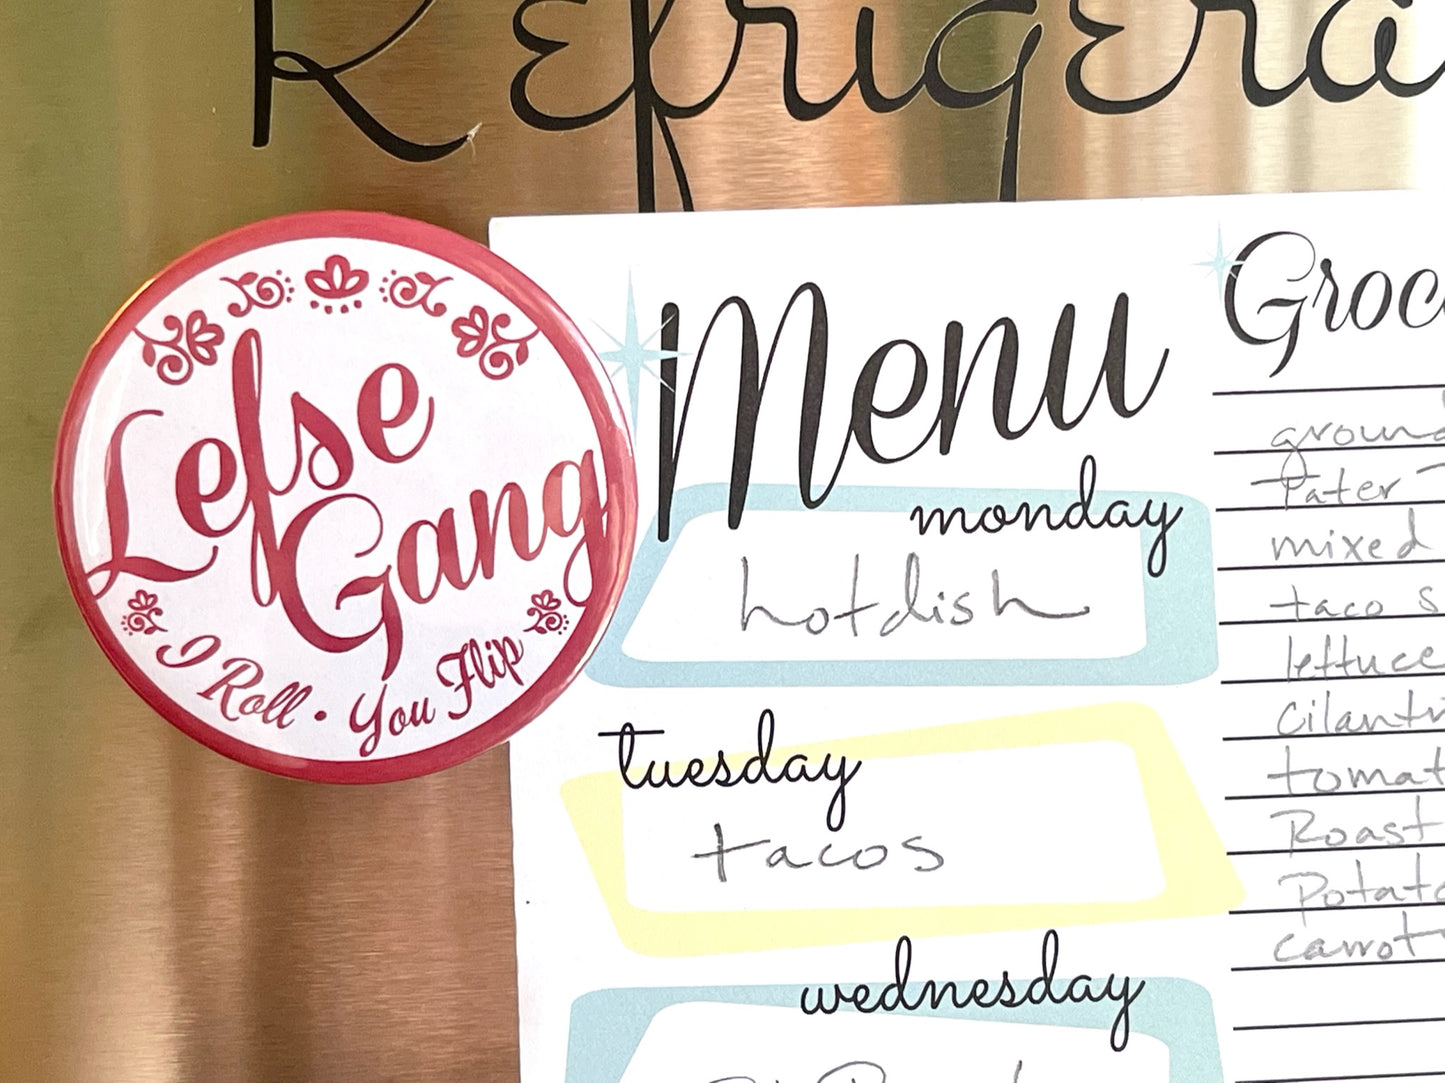 Refrigera
Lefse
Gang
I Roll • You Flip
Menu
monday
hotdish
tuesday
tacos
wednesday
Groc
ground
Tater T
mixed
taco s
lettuce
cilantr
tomat
Roast
Potato
carrot